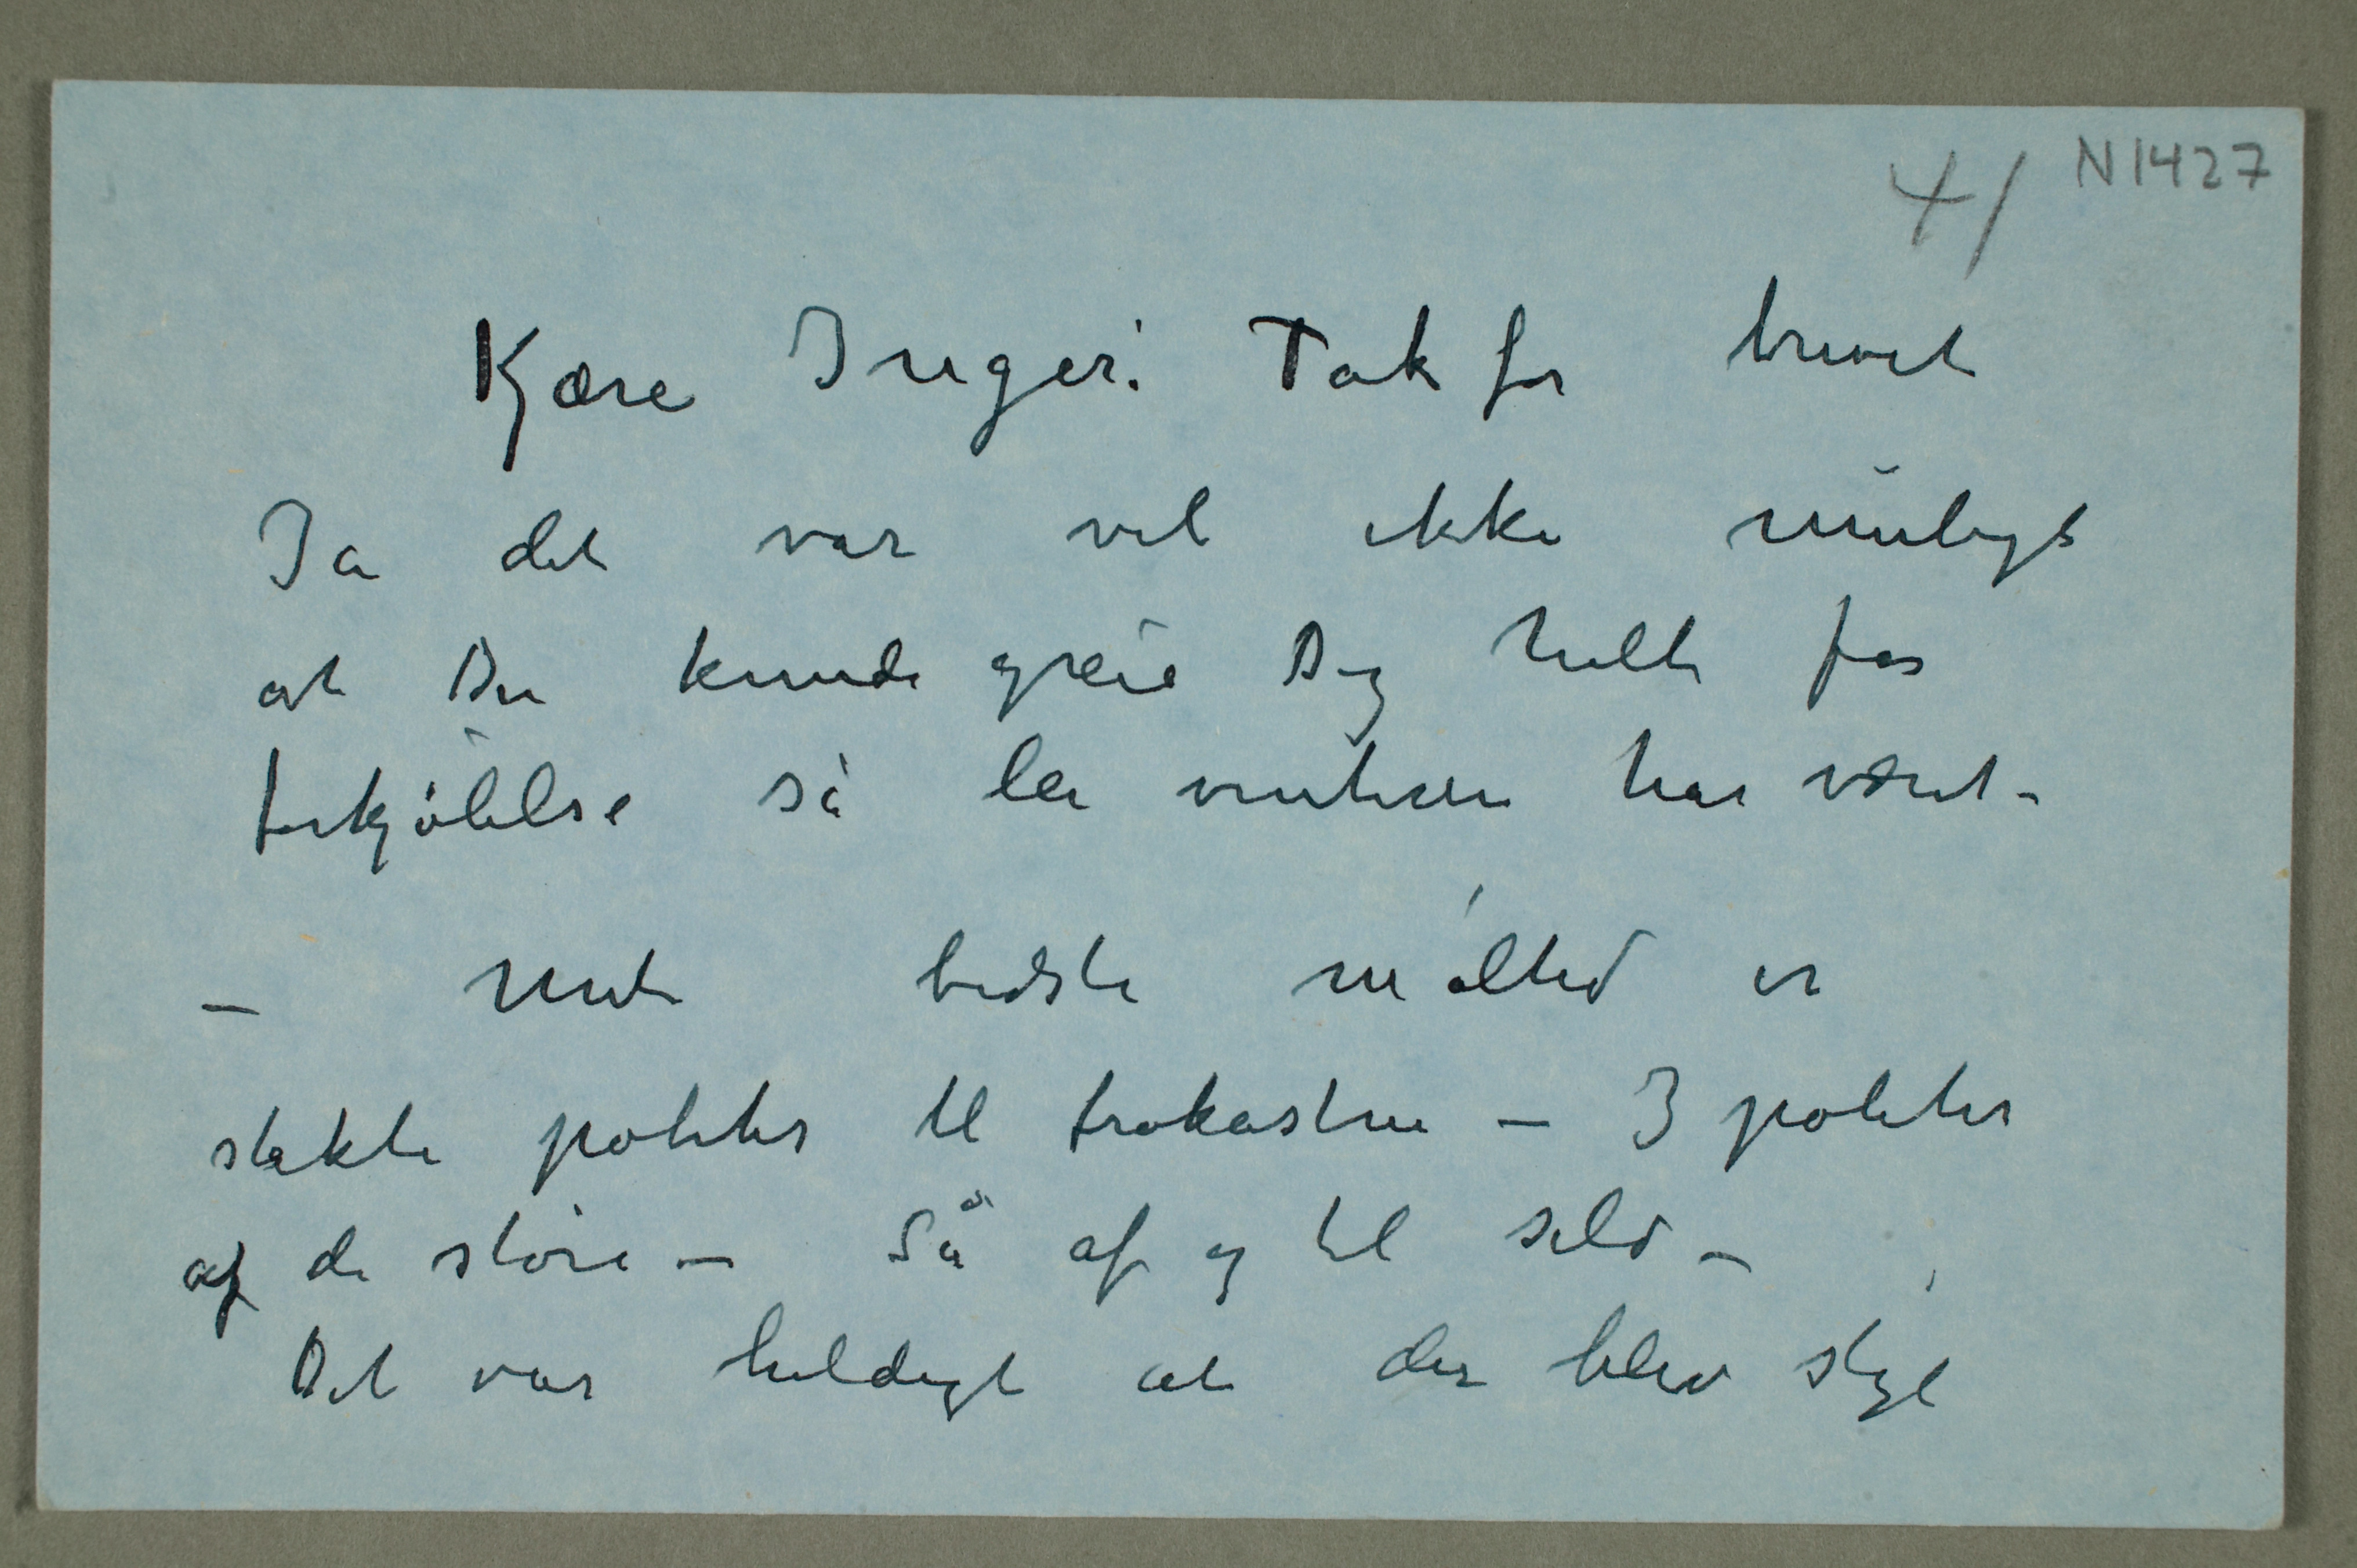 41 N1427
Kjære Inger! Tak for brevet
Ja det var vel ikke muligt
at Du kunde greie Dig helt for
forkjölelse så lei vinteren har været –
– Mit bedste måltid er
stekte poteter til frokosten – 3 poteter
af de store – Så af og til sild –
Det var heldigt at der blev